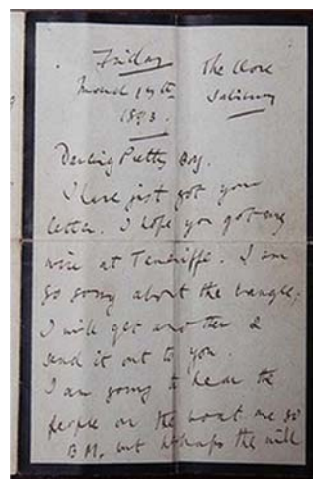 Friday The Close
March 17th Salisbury
1893.
Darling Pretty Boy.
I have just got your
letter. I hope you got my
wire at Teneriffe. I am
so sorry about the bangle,
I will get another &
send it out to you.
I am going to hear the
people on the so
B M, but perhaps the will